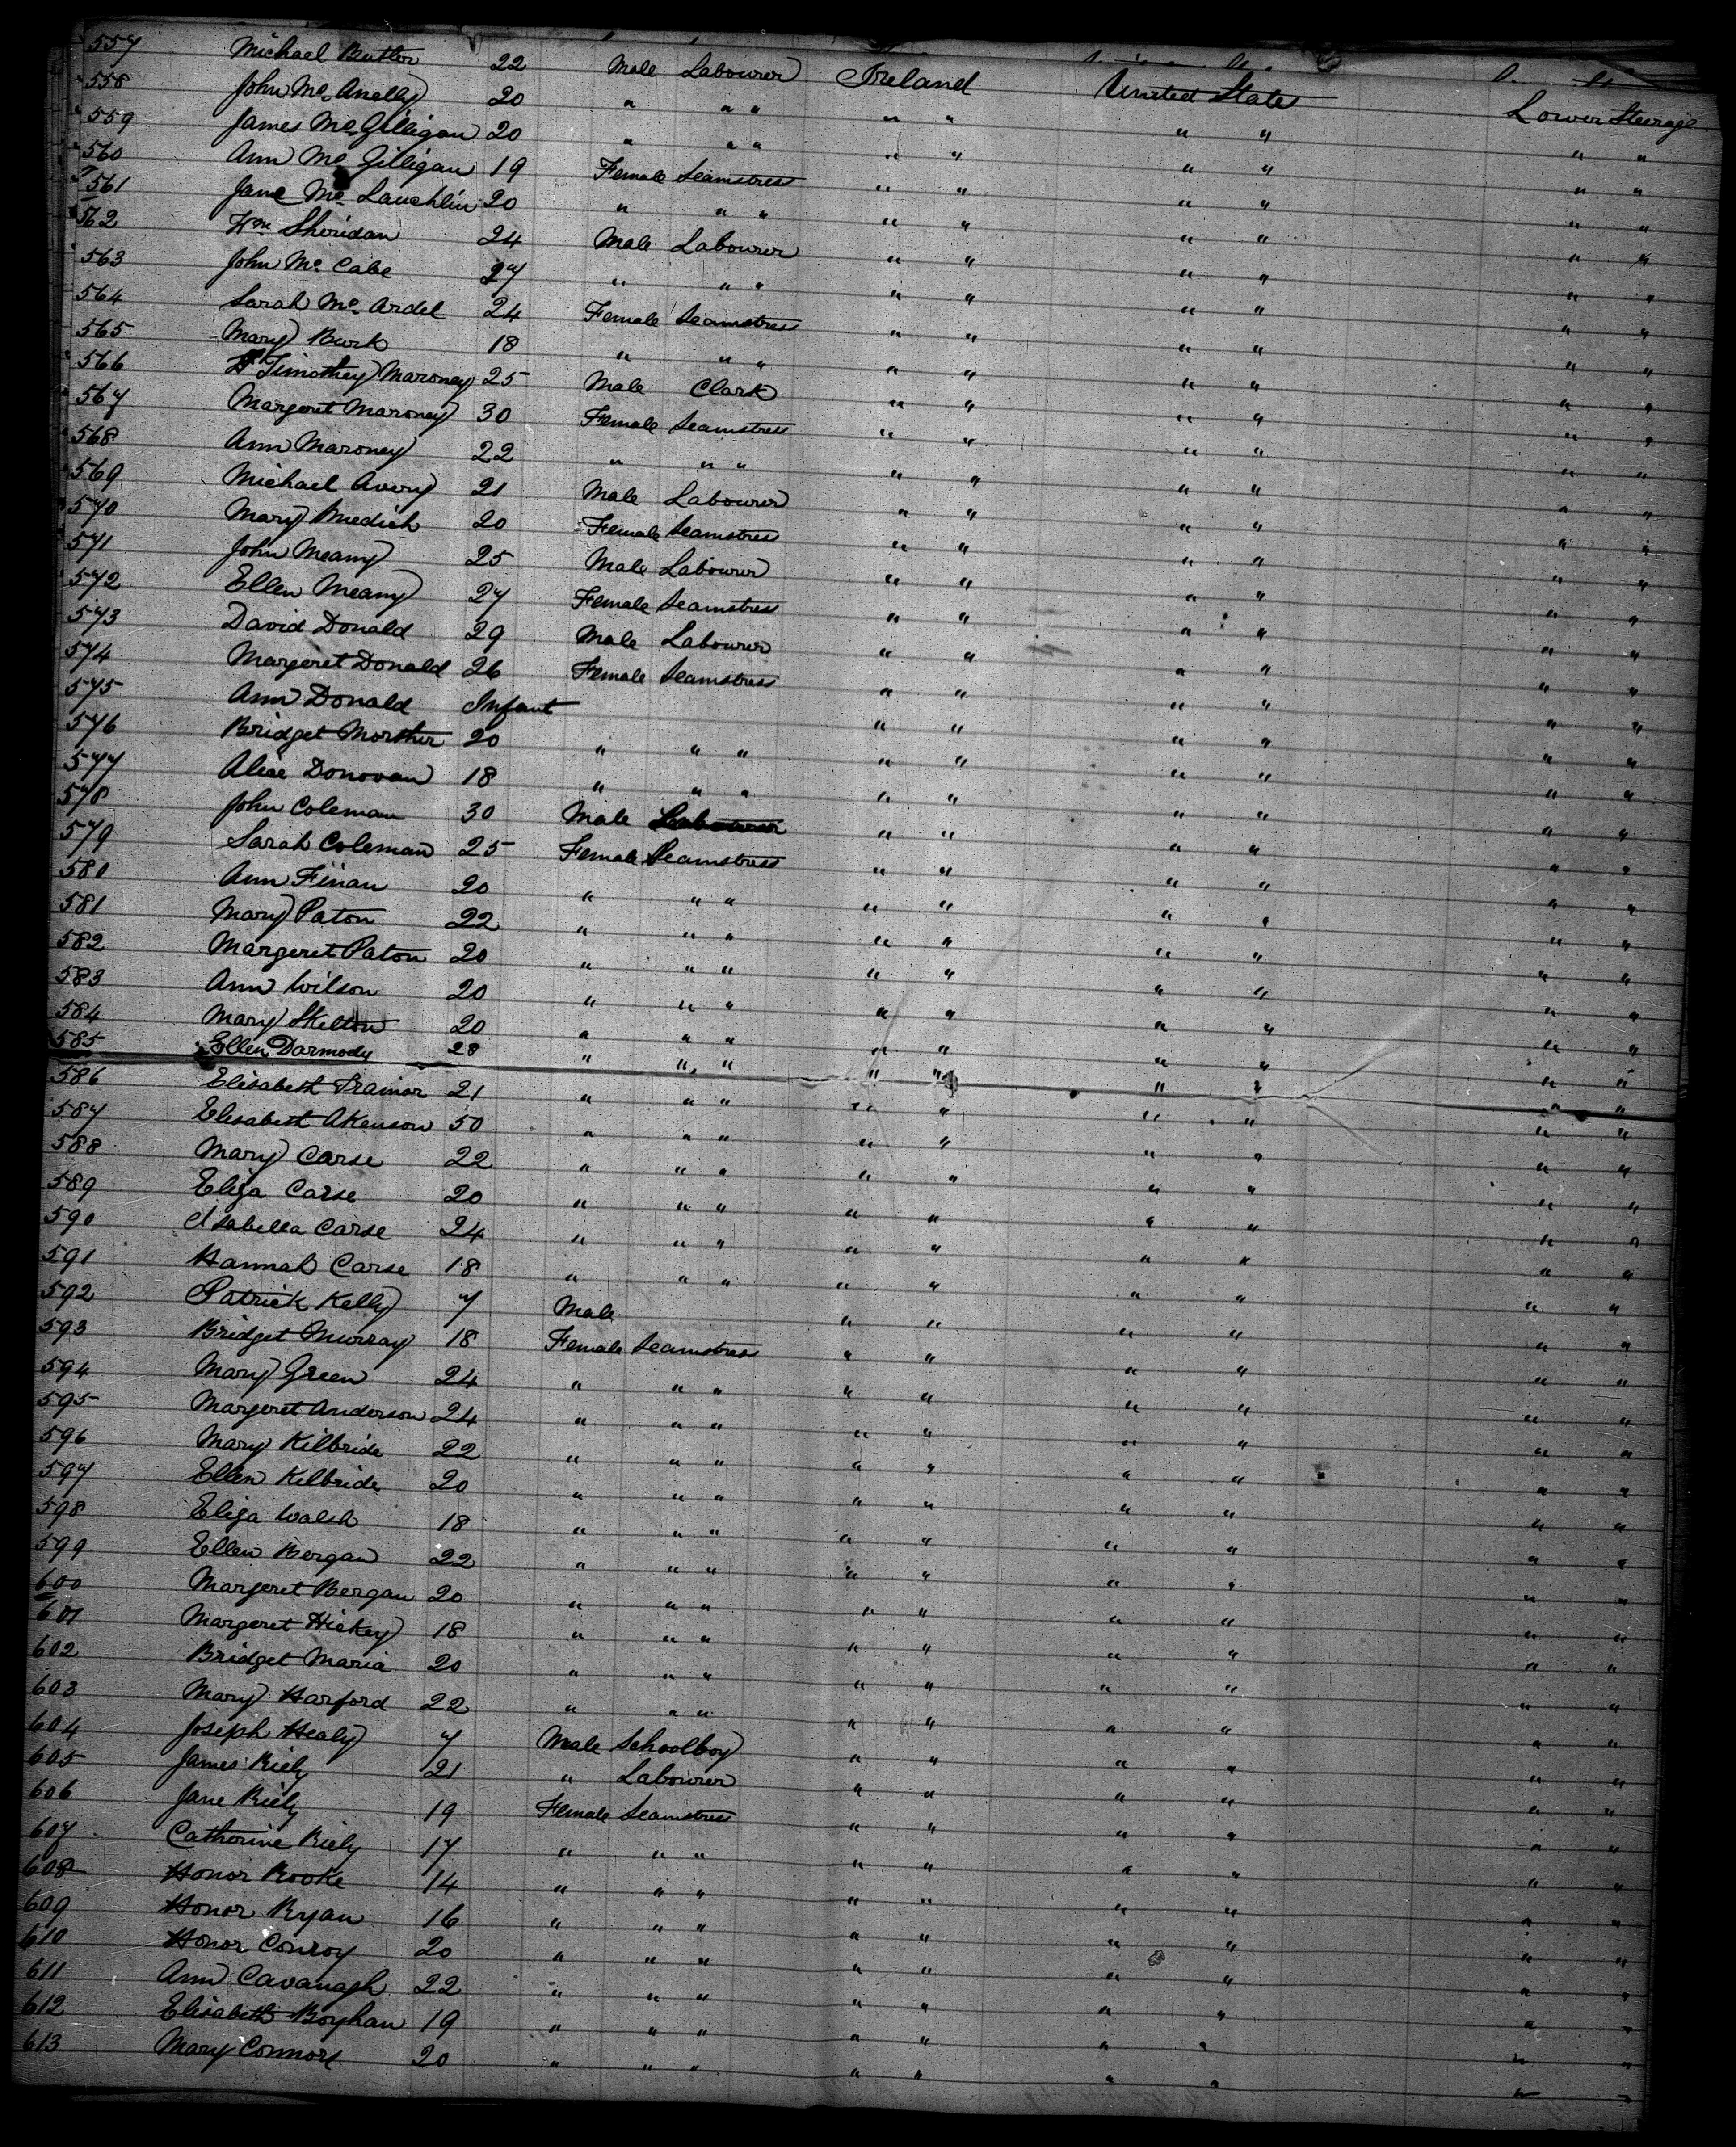 557 Michael Butler 22 Male Labourer Ireland United States Lower Steerage
558 John Mc Anally 20 " " " " " " " " "
559 James Mc Gilligan 20 " " " " " " " " "
560 Ann Mc Gilligan 19 Female Seamstress " " " " " "
561 Jane Mc Lauchlin 20 " " " " " " " " "
562 Wm Sheridan 24 Male Labourer " " " " " "
563 John Mc Cabe 27 " " " " " " " " "
564 Sarah Mc Ardel 24 Female Seamstress " " " " " "
565 Mary Burk 18 " " " " " " " " "
566 Timothey Maroney 25 Male Clark " " " " " "
567 Margeret Maroney 30 Female Seamstress " " " " " "
568 Ann Maroney 22 " " " " " " " " "
569 Michael Avery 21 Male Labourer " " " " " "
570 Mary 20 Female Seamstress " " " " " "
571 John Meany 25 Male Labourer " " " " " "
572 Ellen Meany 27 Female Seamstress " " " " " "
573 David Donald 29 Male Labourer " " " " " "
574 Margeret Donald 26 Female Seamstress " " " " " "
575 Ann Donald Infant " " " " " "
576 Bridget Morther 20 " " " " " " " " "
577 Alice Donovan 18 " " " " " " " " "
578 John Coleman 30 Male Labourer " " " " " "
579 Sarah Coleman 25 Female Seamstress " " " " " "
580 Ann Finan 20 " " " " " " " " "
581 Mary Paton 22 " " " " " " " " "
582 Margeret Paton 20 " " " " " " " " "
583 Ann Wilson 20 " " " " " " " " "
584 Mary Skelton 20 " " " " " " " " "
585 Ellen Darmody 28 " " " " " " " " "
586 Elisabeth Trainor 21 " " " " " " " " "
587 Elisabeth Akenson 50 " " " " " " " " "
588 Mary Carse 22 " " " " " " " " "
589 Eliza Carse 20 " " " " " " " " "
590 Isabella Carse 24 " " " " " " " " "
591 Hannah Carse 18 " " " " " " " " "
592 Patrick Kelly 7 Male " " " " " "
593 Bridget Murray 18 Female Seamstress " " " " " "
594 Mary Green 24 " " " " " " " " "
595 Margeret Anderson 24 " " " " " " " " "
596 Mary Kilbride 22 " " " " " " " " "
597 Ellen Kilbride 20 " " " " " " " " "
598 Eliza Walsh 18 " " " " " " " " "
599 Ellen Bergan 22 " " " " " " " " "
600 Margeret Bergan 20 " " " " " " " " "
601 Margeret Hickey 18 " " " " " " " " "
602 Bridget Maria 20 " " " " " " " " "
603 Mary Harford 22 " " " " " " " " "
604 Joseph Healy 7 Male Schoolboy " " " " " "
605 James Riely 21 " Labourer " " " " " "
606 Jane Riely 19 Female Seamstress " " " " " "
607 Catherine Riely 17 " " " " " " " " "
608 Honor Rooke 14 " " " " " " " " "
609 Honor Ryan 16 " " " " " " " " "
610 Honor Conroy 20 " " " " " " " " "
611 Ann Cavanagh 22 " " " " " " " " "
612 Elisabeth Boyhan 19 " " " " " " " " "
613 Mary Connors 20 " " " " " " " " "